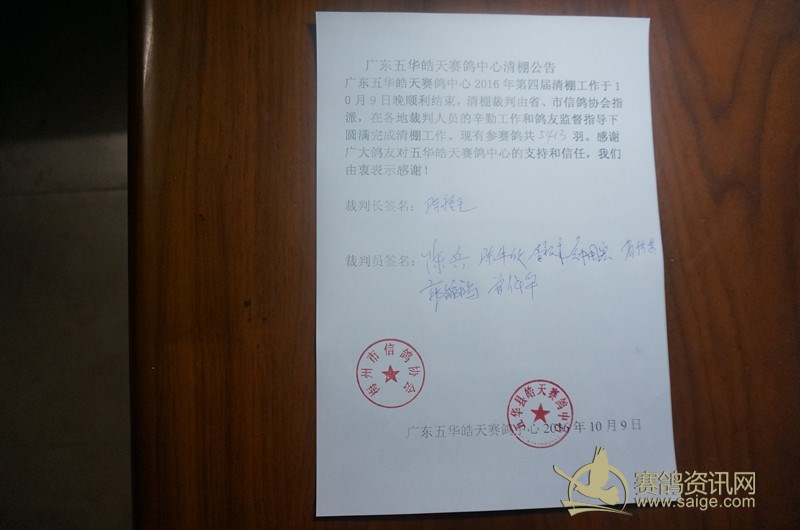 广东五华皓天赛鸽中心清棚公告
广东五华皓天赛鸽中心 2016 年第四届清棚工作于 1
0 月 9 日晚顺利结束，清棚裁判由省、市信鸽协会指
派，在各地裁判人员的辛勤工作和鸽友监督指导下
圆满完成清棚工作、现有参赛鸽共 5413 羽。感谢
广大鸽友对五华皓天赛鸽中心的支持和信任，我们
由衷表示感谢！
裁判长签名：
裁判员签名：
梅州市信鸽协会
五华县皓天赛鸽中心
广东五华皓天赛鸽中心 2016 年 10 月 9 日
赛鸽资讯网
www.saige.com